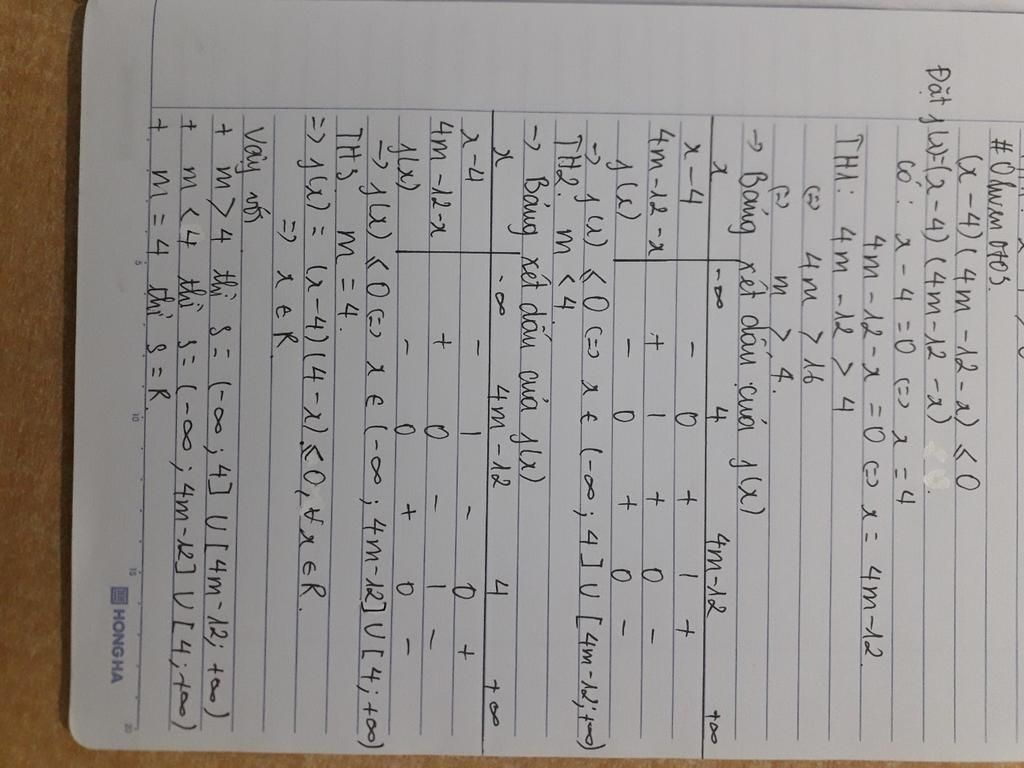 #Olwen M05.
(x-4)(4m-12-x) ≤ 0
Đặt f(x)=(x-4)(4m-12-x)
có: x-4=0 <=> x=4
4m-12-x=0 <=> x=4m-12.
TH1: 4m-12>4
<=> 4m>16
<=> m>4.
-> Bảng xét dấu của f(x)
x -∞ 4 4m-12 +∞
x-4 - 0 + | +
4m-12-x + | + 0 -
f(x) - 0 + 0 -
-> f(x) ≤ 0 <=> x ∈ (-∞; 4] U [4m-12; +∞)
TH2: m<4.
-> Bảng xét dấu của f(x)
x -∞ 4m-12 4 +∞
x-4 - | - 0 +
4m-12-x + 0 - | -
f(x) - 0 + 0 -
-> f(x) ≤ 0 <=> x ∈ (-∞; 4m-12] U [4; +∞)
TH3 m=4.
=> f(x) = (x-4)(4-x) ≤ 0, ∀x ∈ R.
=> x ∈ R
Vậy với
+ m>4 thì S=(-∞; 4] U [4m-12; +∞)
+ m<4 thì S=(-∞; 4m-12] U [4; +∞)
+ m=4 thì S=R
5 10 15 20
HONG HA